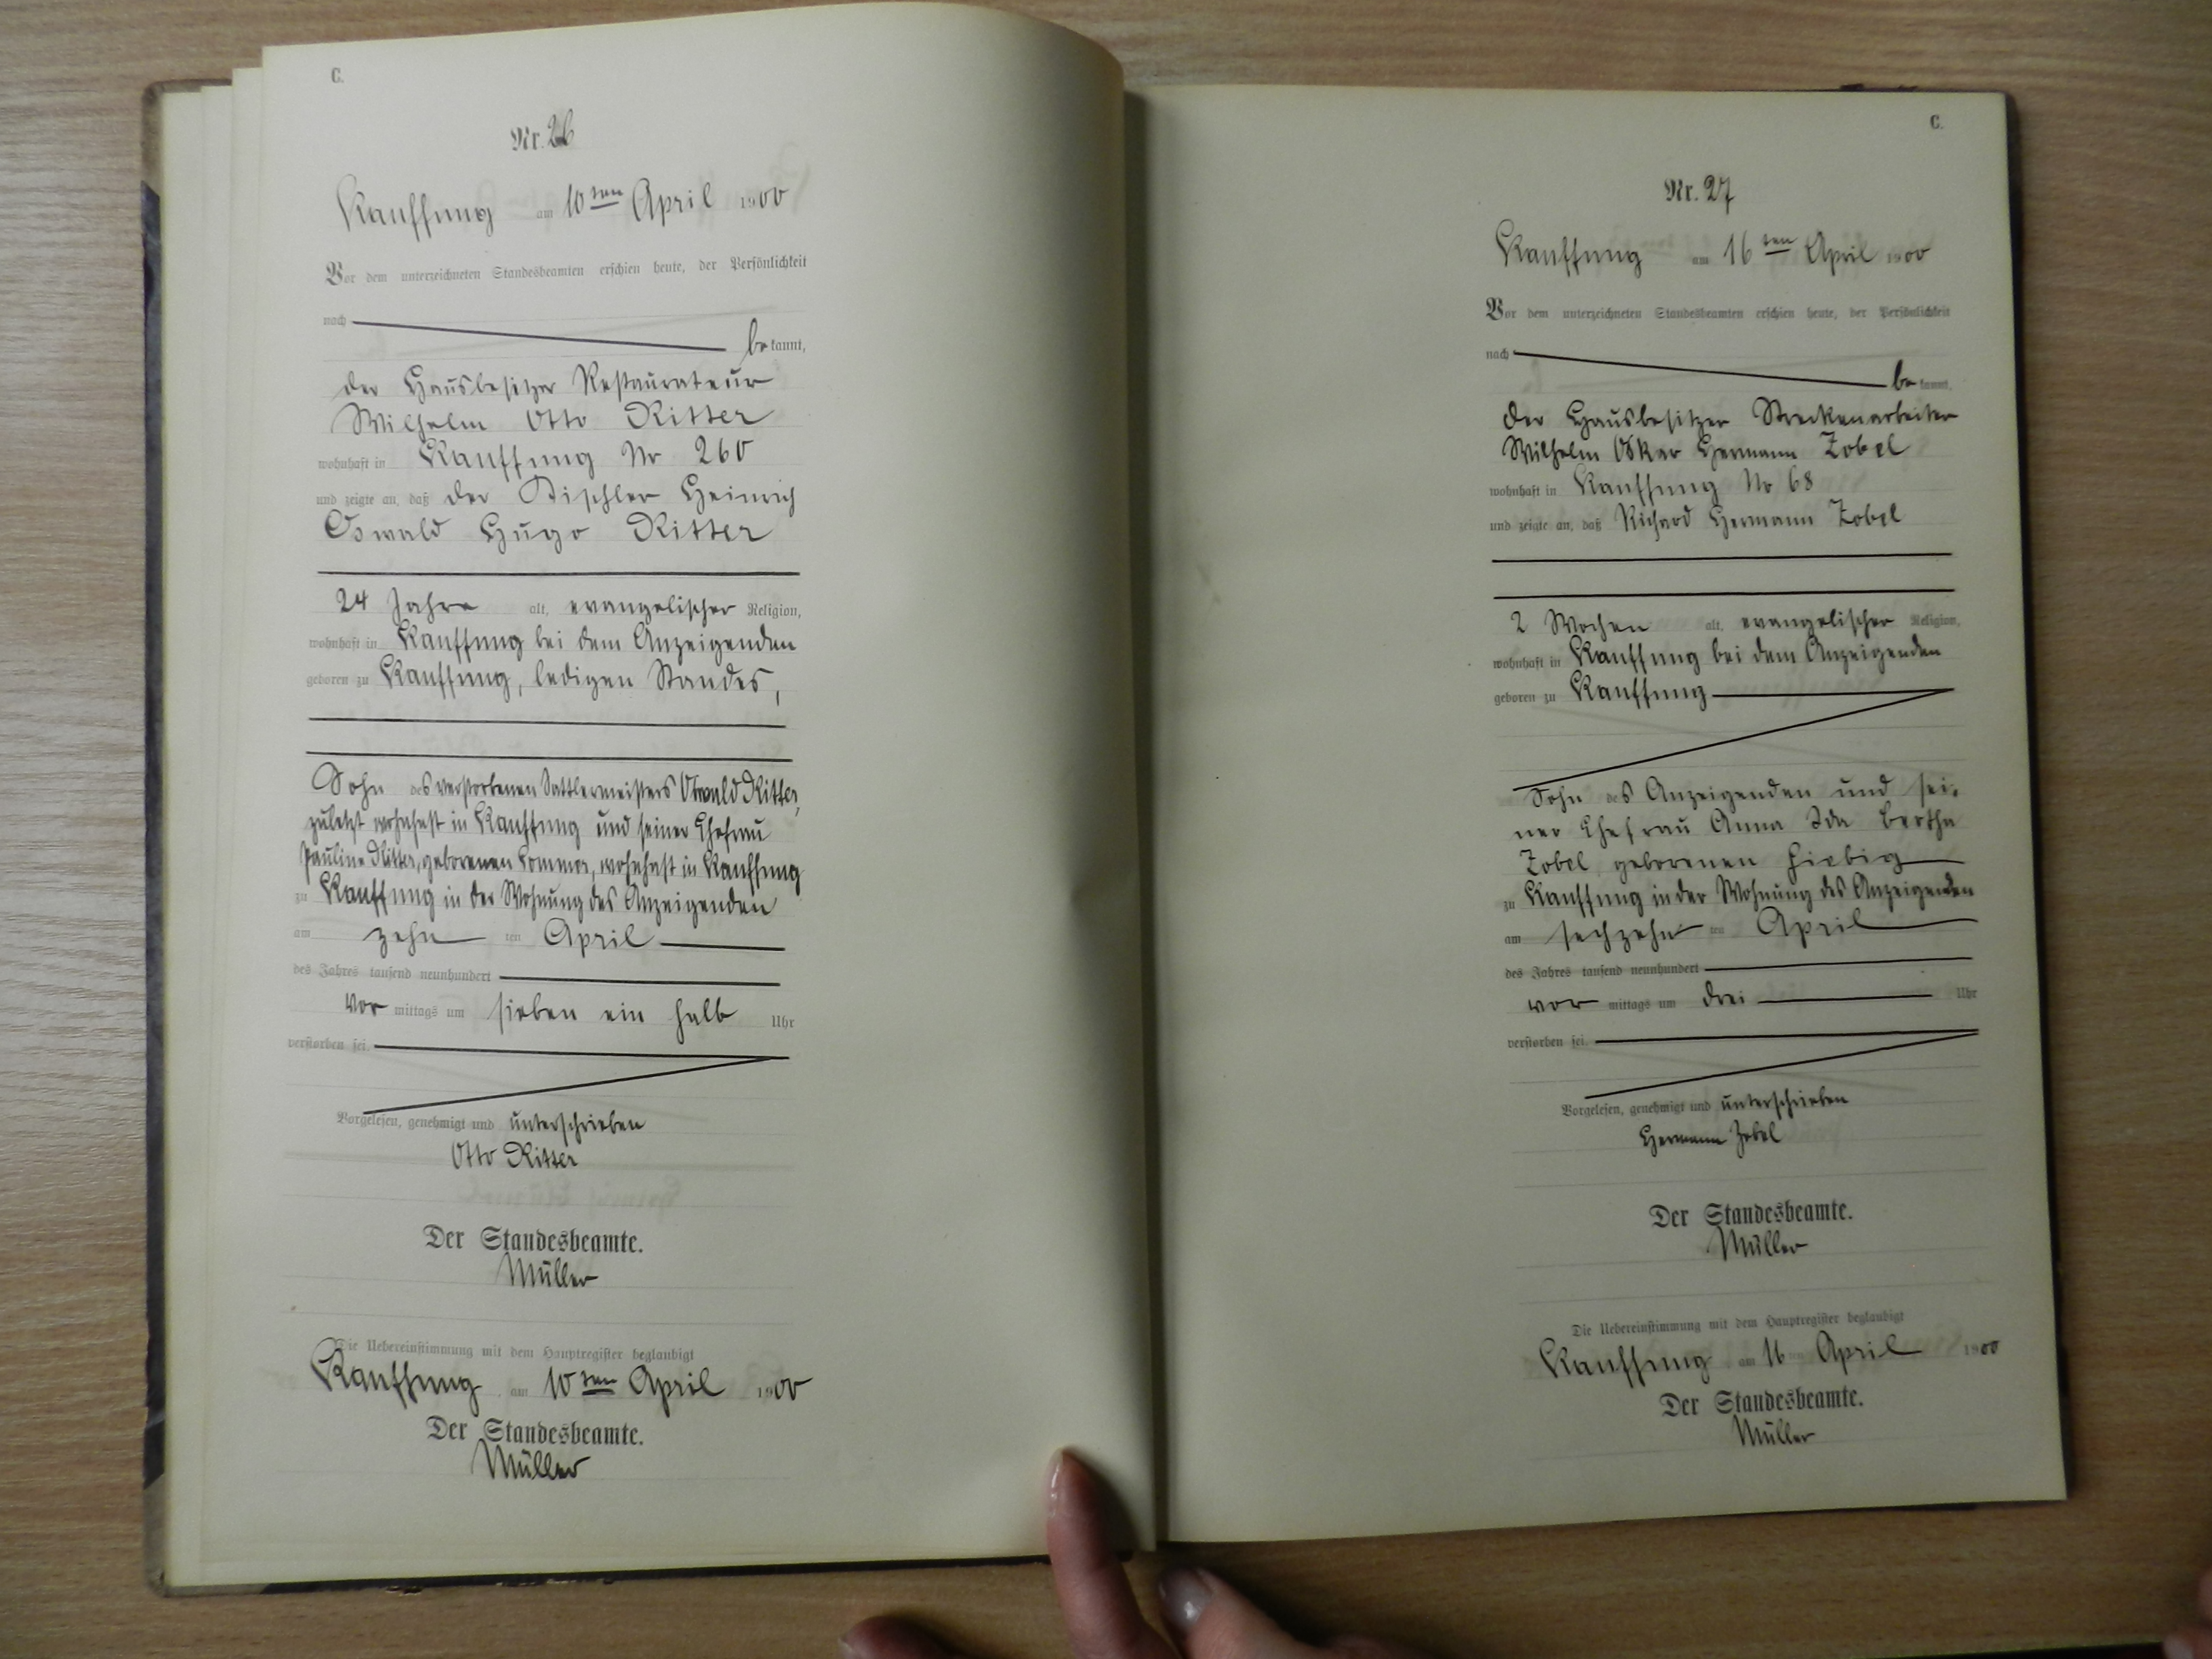 C.
Nr. 26
Kauffung am 10ten April 1900
Vor dem unterzeichneten Standesbeamten erschien heute, der Persönlichkeit
nach
be kannt,
der Hausbesitzer Restaurateur
Wilhelm Otto Ritter
wohnhaft in Kauffung No 260
und zeigte an, daß der Tischler Heinrich
Oswald Hugo Ritter
24 Jahre alt, evangelischer Religion,
wohnhaft in Kauffung bei dem Anzeigenden
geboren zu Kauffung, ledigen Standes,
Sohn des verstorbenen Sattlermeisters Oswald Ritter,
zuletzt wohnhaft in Kauffung und seiner Ehefrau
Pauline Ritter, geborenen Sommer, wohnhaft in Kauffung
zu Kauffung in der Wohnung des Anzeigenden
am zehn ten April
des Jahres tausend neunhundert
vor mittags um sieben ein halb Uhr
verstorben sei.
Vorgelesen, genehmigt und unterschrieben
Otto Ritter
Der Standesbeamte.
Müller
Die Uebereinstimmung mit dem Hauptregister beglaubigt
Kauffung am 10ten April 1900
Der Standesbeamte.
Müller
C.
Nr. 27
Kauffung am 16ten April 1900
Vor dem unterzeichneten Standesbeamten erschien heute, der Persönlichkeit
nach
be kannt,
der Hausbesitzer Streckenarbeiter
Wilhelm Oskar Hermann Zobel
wohnhaft in Kauffung No 68
und zeigte an, daß Richard Hermann Zobel
2 Wochen alt, evangelischer Religion,
wohnhaft in Kauffung bei dem Anzeigenden
geboren zu Kauffung
Sohn des Anzeigenden und sei-
ner Ehefrau Anna Ida Bertha
Zobel geborenen Hiebig
zu Kauffung in der Wohnung des Anzeigenden
am sechzehn ten April
des Jahres tausend neunhundert
vor mittags um drei Uhr
verstorben sei.
Vorgelesen, genehmigt und unterschrieben
Hermann Zobel
Der Standesbeamte.
Müller
Die Uebereinstimmung mit dem Hauptregister beglaubigt
Kauffung am 16 ten April 1900
Der Standesbeamte.
Müller